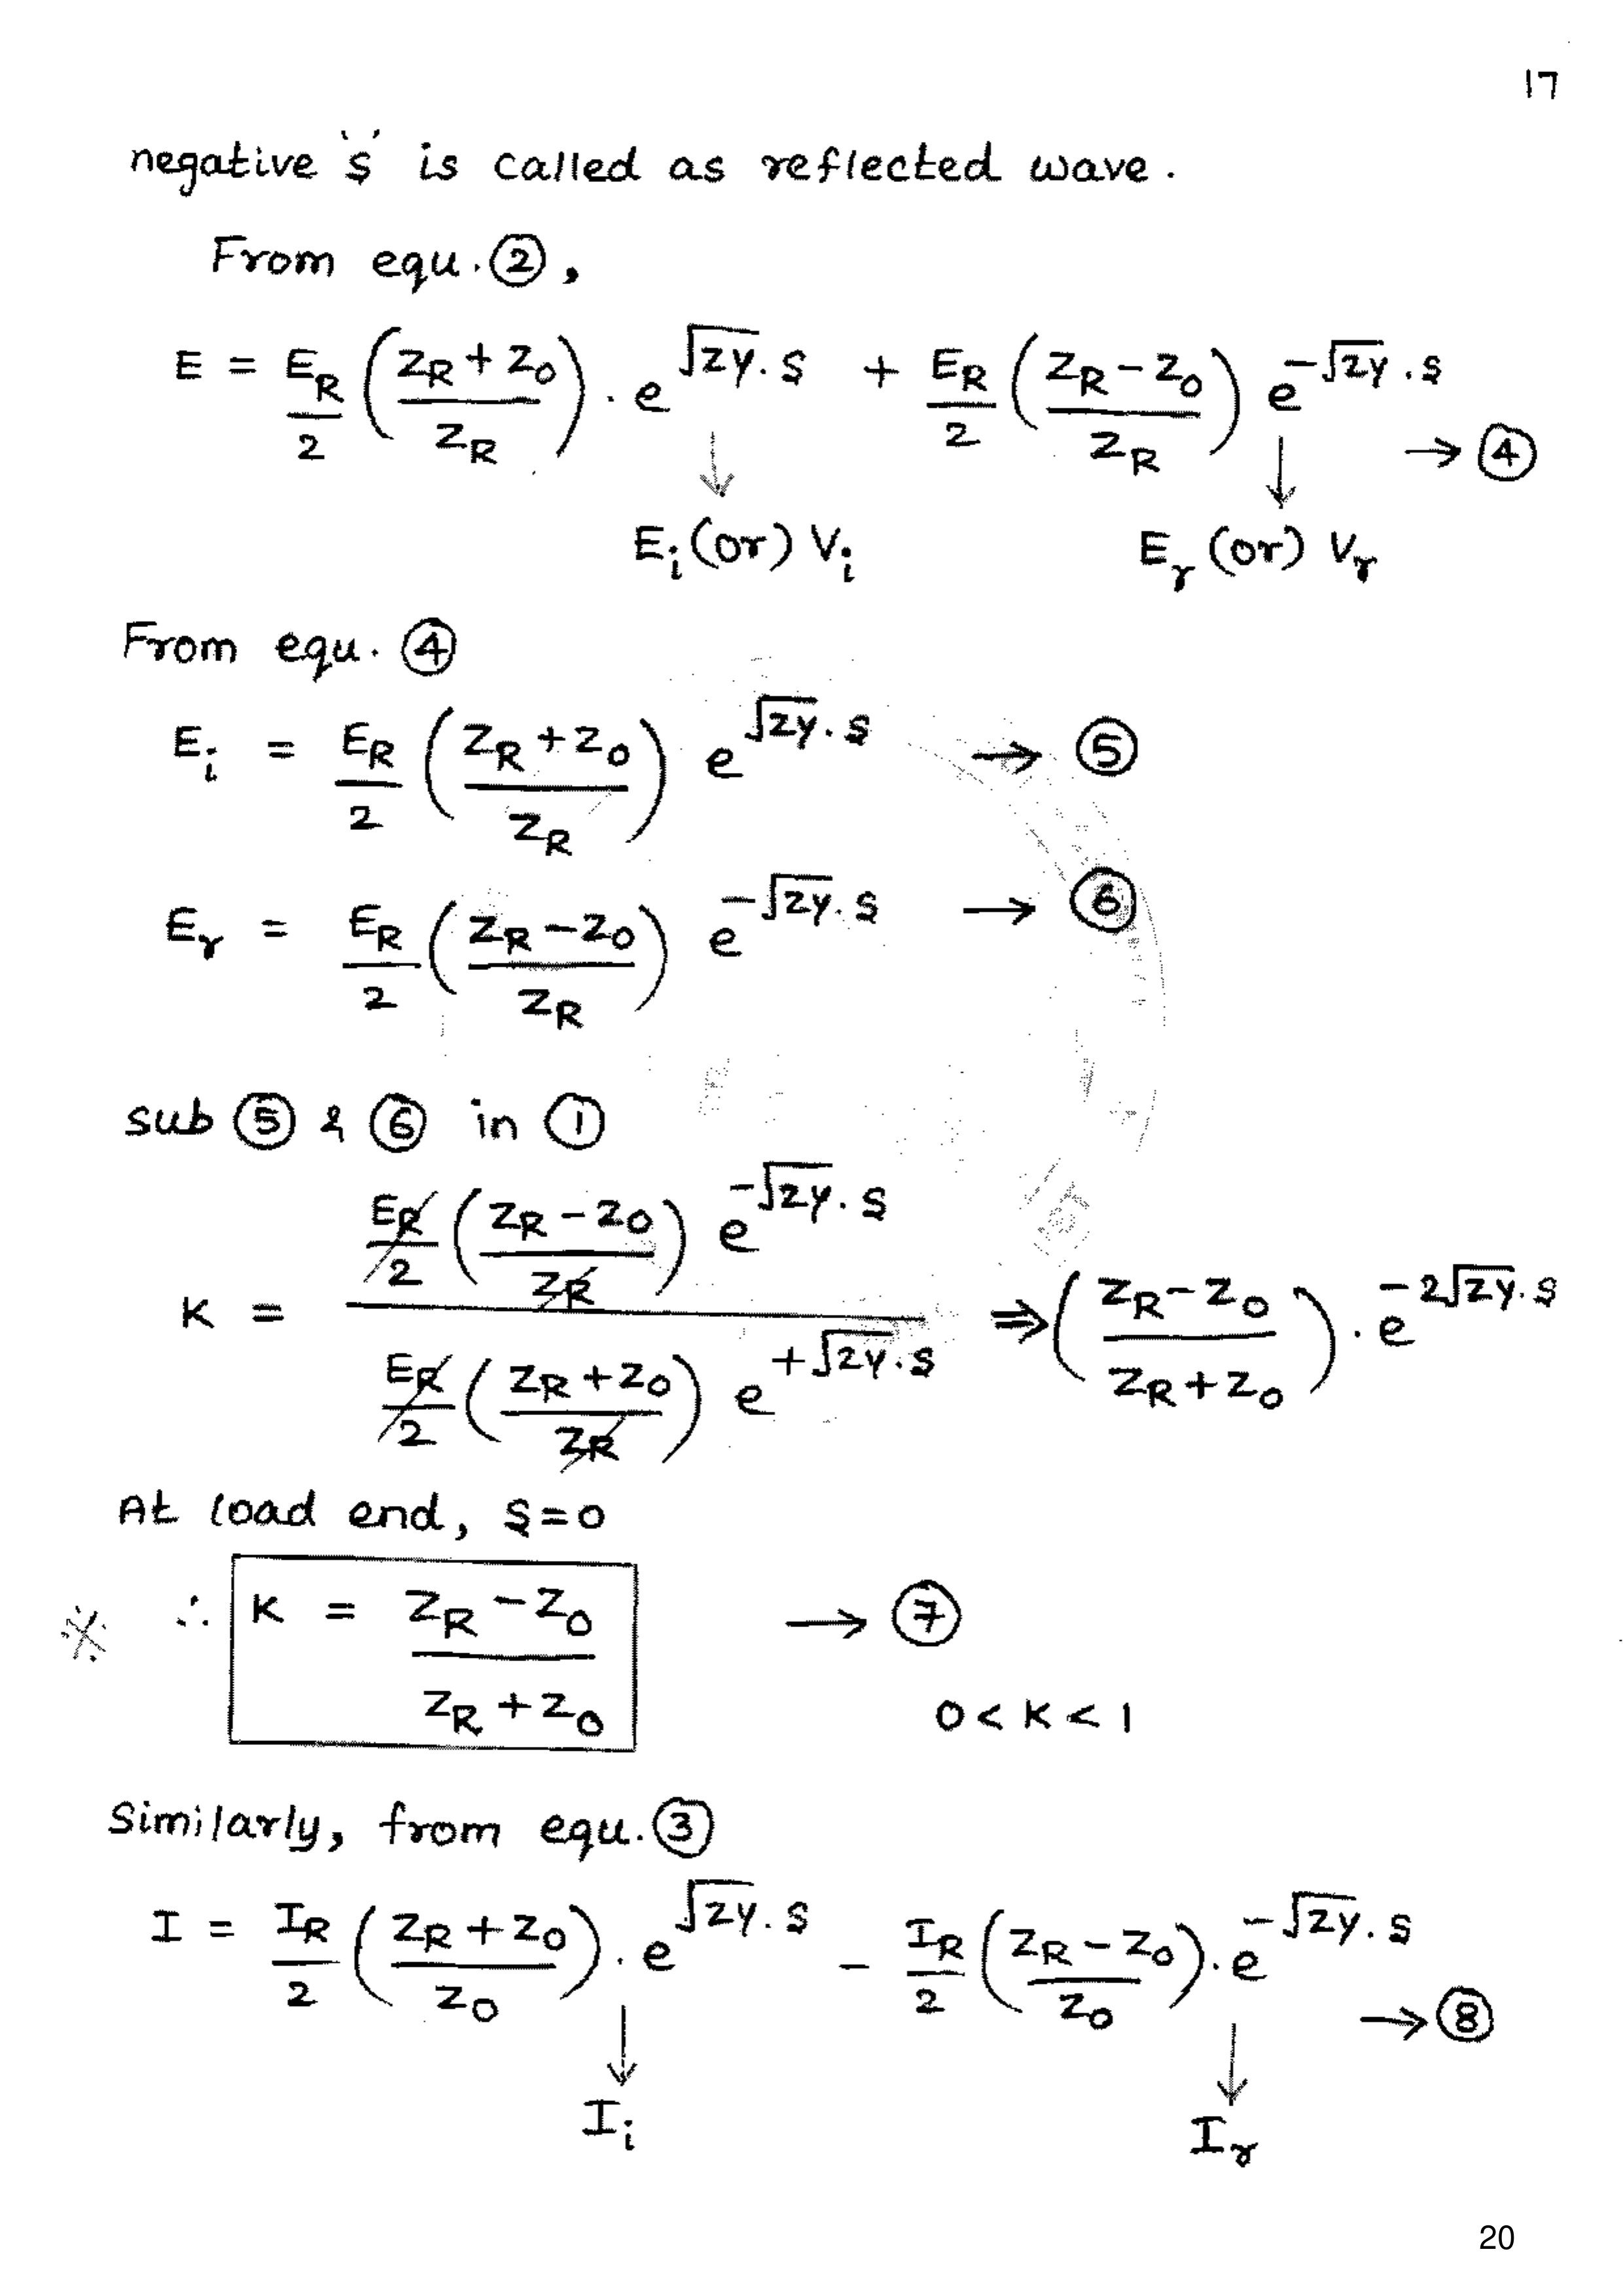 17
negative 's' is called as reflected wave.
From equ. ②,
E = E_R/2 ( (Z_R + Z_0)/Z_R ) . e^{√(zy) . s} + E_R/2 ( (Z_R - Z_0)/Z_R ) e^{-√(zy) . s} → ④
E_i (or) V_i    E_r (or) V_r
From equ. ④
E_i = E_R/2 ( (Z_R + Z_0)/Z_R ) e^{√(zy) . s} → ⑤
E_r = E_R/2 ( (Z_R - Z_0)/Z_R ) e^{-√(zy) . s} → ⑥
sub ⑤ & ⑥ in ①
K = [ E_R/2 ( (Z_R - Z_0)/Z_R ) e^{-√(zy) . s} ] / [ E_R/2 ( (Z_R + Z_0)/Z_R ) e^{+√(zy) . s} ] ⇒ ( (Z_R - Z_0)/(Z_R + Z_0) ) . e^{-2√(zy) . s}
At load end, s = 0
※ ∴ K = (Z_R - Z_0)/(Z_R + Z_0) → ⑦
0 < K < 1
Similarly, from equ. ③
I = I_R/2 ( (Z_R + Z_0)/Z_0 ) . e^{√(zy) . s} - I_R/2 ( (Z_R - Z_0)/Z_0 ) . e^{-√(zy) . s} → ⑧
I_i    I_r
20